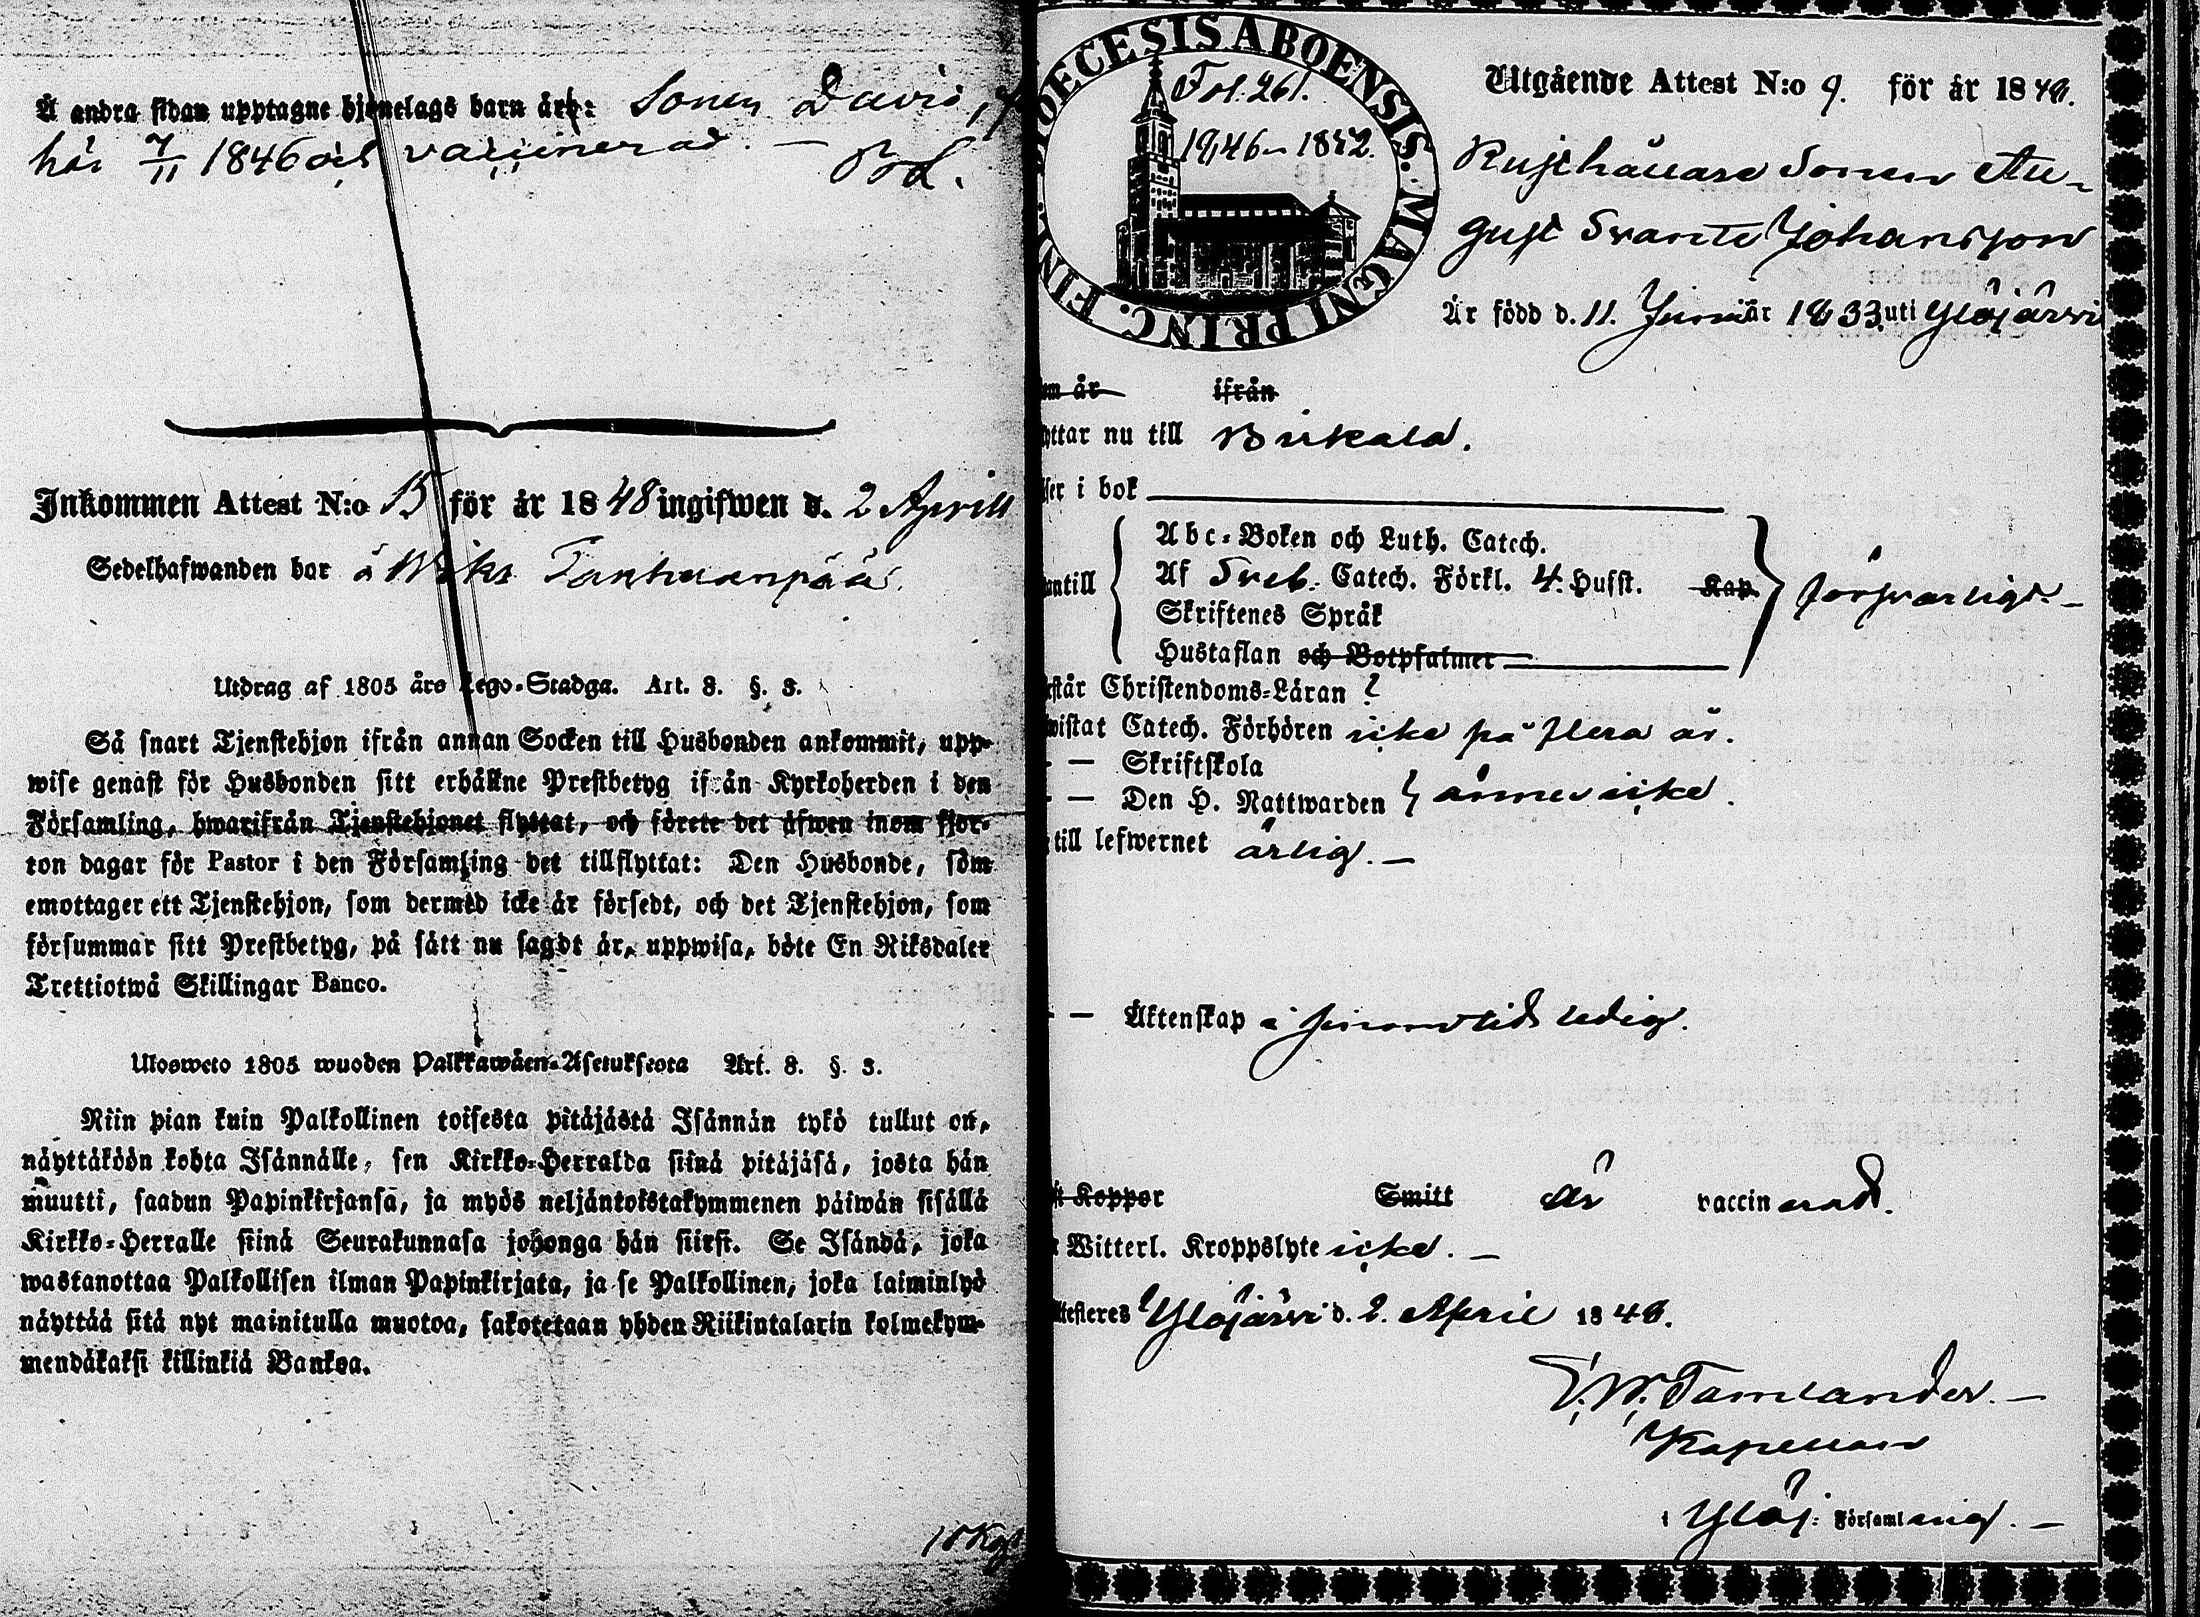 Å andra sidan upptagne hjonelags barn äro: Sonen David,
här 7/11 1846 och vaccinerad. —
Inkommen Attest N:o 15 för år 1848 ingifwen d. 2 Aprill
Sedelhafwanden bor å
Utdrag af 1805 års Lego-Stadga. Art. 8. §. 3.
Så snart Tjenstehjon ifrån annan Socken till Husbonden ankommit, upp-
wise genast för Husbonden sitt erhållne Prestbetyg ifrån Kyrkoherden i den
Församling, hwarifrån Tjenstehjonet flyttat, och förete det äfwen inom fjor-
ton dagar för Pastor i den Församling det tillflyttat: Den Husbonde, som
emottager ett Tjenstehjon, som dermed icke är försedt, och det Tjenstehjon, som
försummar sitt Prestbetyg, på sätt nu sagdt är, uppwisa, böte En Riksdaler
Trettiotwå Skillingar Banco.
Ulosweto 1805 wuoden Palkkawäen-Asetuksesta Art. 8. §. 3.
Niin pian kuin Palkollinen toisesta pitäjästä Isännän tykö tullut on,
näyttäköön kohta Isännälle, sen Kirkko-Herralda siinä pitäjäsä, josta hän
muutti, saadun Papinkirjansa, ja myös neljäntoistakymmenen päiwän sisällä
Kirkko-Herralle siinä Seurakunnasa johonga hän siirsi. Se Isändä, joka
wastanottaa Palkollisen ilman Papinkirjata, ja se Palkollinen, joka laiminlyö
näyttää sitä nyt mainitulla muotoa, sakotetaan yhden Riikintalarin kolmekym-
mendäkaksi killinkiä Bankoa.
DIOECESIS ABOENSIS. MAGNI PRINC. FIN.
Fol. 261.
1846–1852.
Utgående Attest N:o 9. för år 1848.
Rusthållare Sonen Au-
gust Svante Johansson
Är född d. 11. Januar 1833 uti Ylöjärvi
om är ifrån
yttar nu till Birkala.
ser i bok
Abc-Boken och Luth. Catech.
antill Af Sveb. Catech. Förkl. 4. Hufst. Kap. försvarligt. —
Skriftenes Språk
Hustaflan och Botpsalmer
står Christendoms-Läran ?
wistat Catech. Förhören icke på flera år.
— Skriftskola
— Den H. Nattwarden ännu icke.
till lefwernet ärlig. —
— Äktenskap ledig.
t Koppor Smitt är vaccinerad.
Witterl. Kroppslyte icke. —
ttesteres Ylöjärvi d. 2. April 1848.
Tamlander. —
Kapellan
i Ylöj: Församling. —